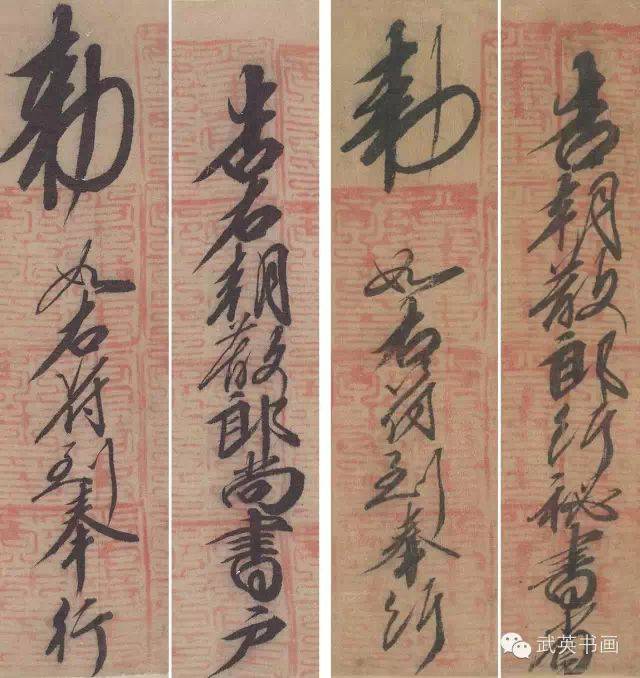 告朝散郎行秘書省
勅如右符到奉行
告右朝散郎尚書戶
勅如右符到奉行
武英书画